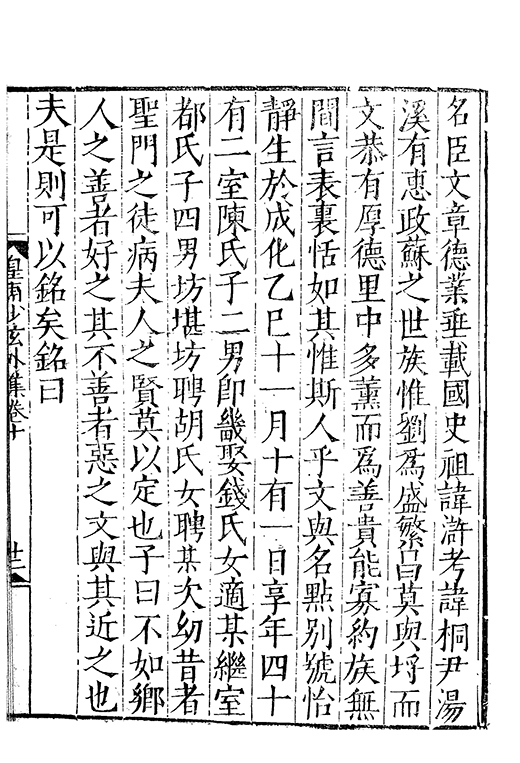 名臣文章德業垂載國史祖諱滸考諱桐尹湯
溪有惠政蘇之世族惟劉爲盛繁昌莫與埒而
文恭有厚德里中多薰而爲善貴能寡約族無
間言表裏恬如其惟斯人乎文與名點别號怡
靜生於成化乙巳十一月十有一日享年四十
有二室陳氏子二男卽畿娶錢氏女適某繼室
都氏子四男坊堪坊聘胡氏女聘某次幼昔者
聖門之徒病夫人之賢莫以定也子曰不如鄉
人之善者好之其不善者惡之文與其近之也
夫是則可以銘矣銘曰
皇甫少玄外集卷十
廿二